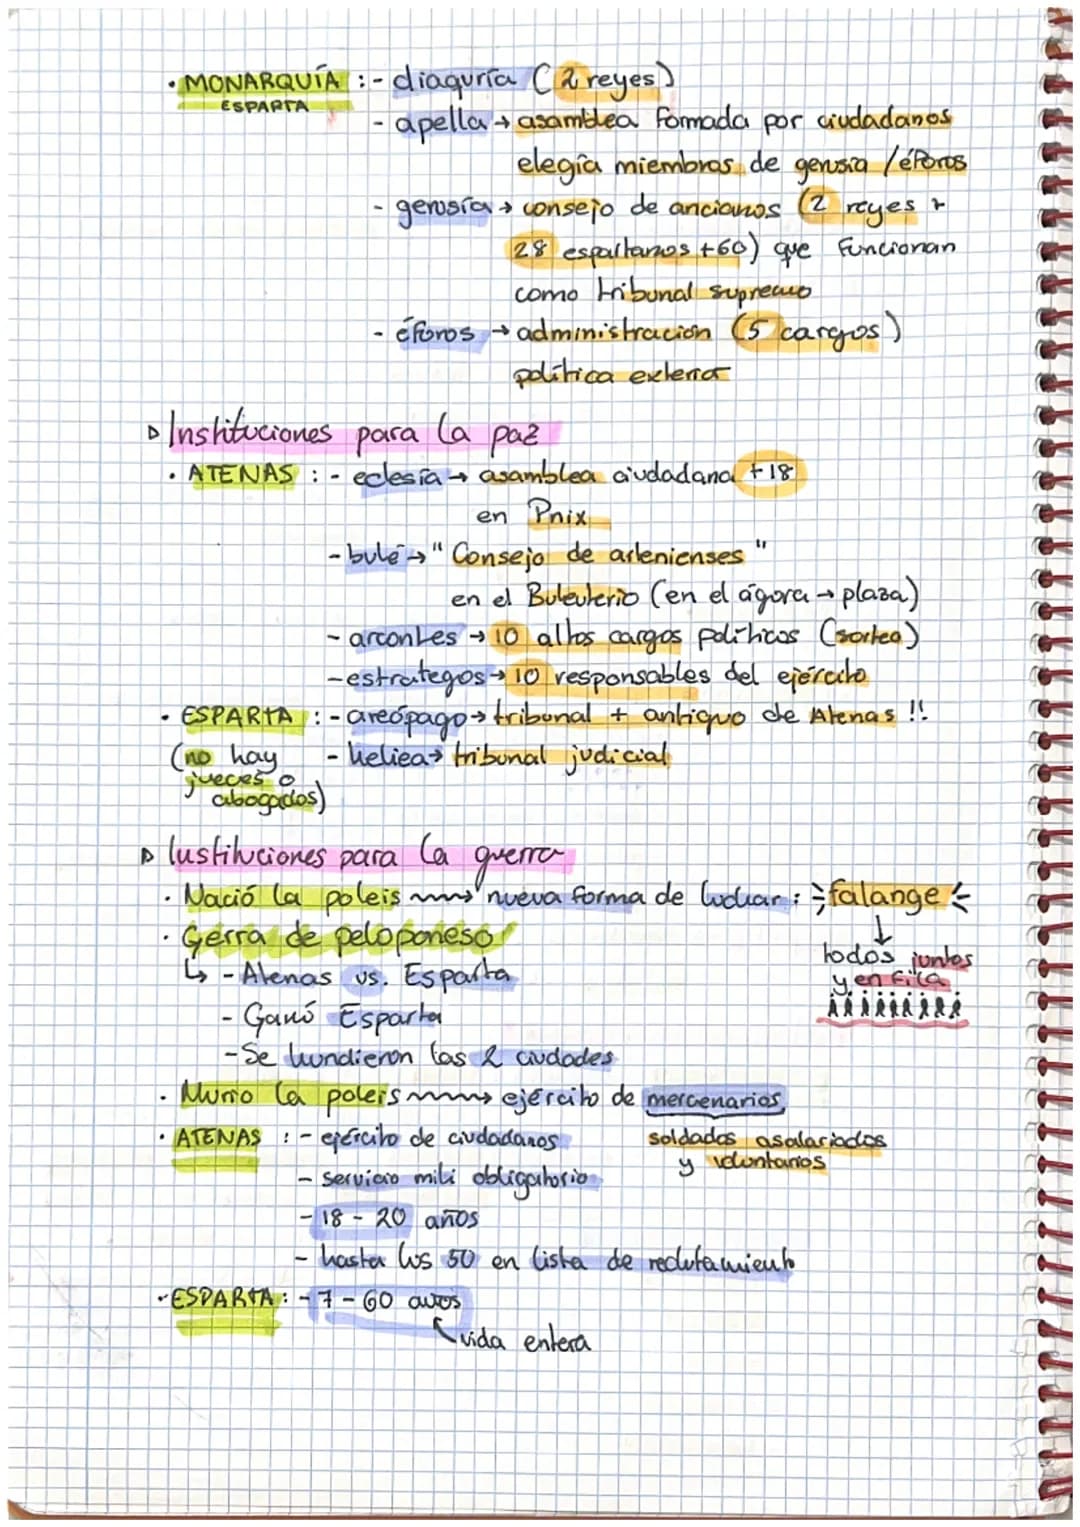 · MONARQUÍA : - diaquría (2 reyes)
ESPARTA
- apella → asamblea formada por ciudadanos
elegía miembros de gerusia / éforos
- gerusía → consejo de ancianos (2 reyes +
28 espartanos +60) que funcionan
como tribunal supremo
- éforos → administración (5 cargos)
política exterior
▷ Instituciones para la paz
· ATENAS : - eclesía → asamblea ciudadana +18
en Pnix
- bulé → "Consejo de atenienses"
en el Buleuterio (en el ágora → plaza)
- arcontes → 10 altos cargos políticos (sorteo)
- estrategos → 10 responsables del ejército
· ESPARTA : - areópago → tribunal + antiguo de Atenas !!
(no hay - heliea → tribunal judicial
jueces o
abogados)
▷ Instituciones para la guerra
· Nació la poleis → nueva forma de luchar : falange
· Gerra de peloponeso
↓
todos juntos
y en fila
↳ - Atenas vs. Esparta
- Ganó Esparta
- Se hundieron las 2 ciudades
· Murio la poleis → ejército de mercenarios
· ATENAS : - ejército de ciudadanos
soldados asalariados
y voluntarios
- servicio mili obligatorio
- 18 - 20 años
- hasta los 50 en lista de reclutamiento
· ESPARTA : - 7 - 60 años
vida entera